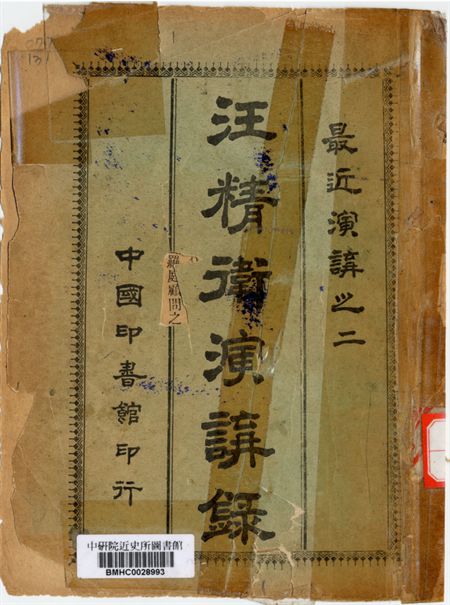 最近演講之二
汪精衛演講錄
中國印書館印行
顧問之
中研院近史所圖書館
BMHC0028993